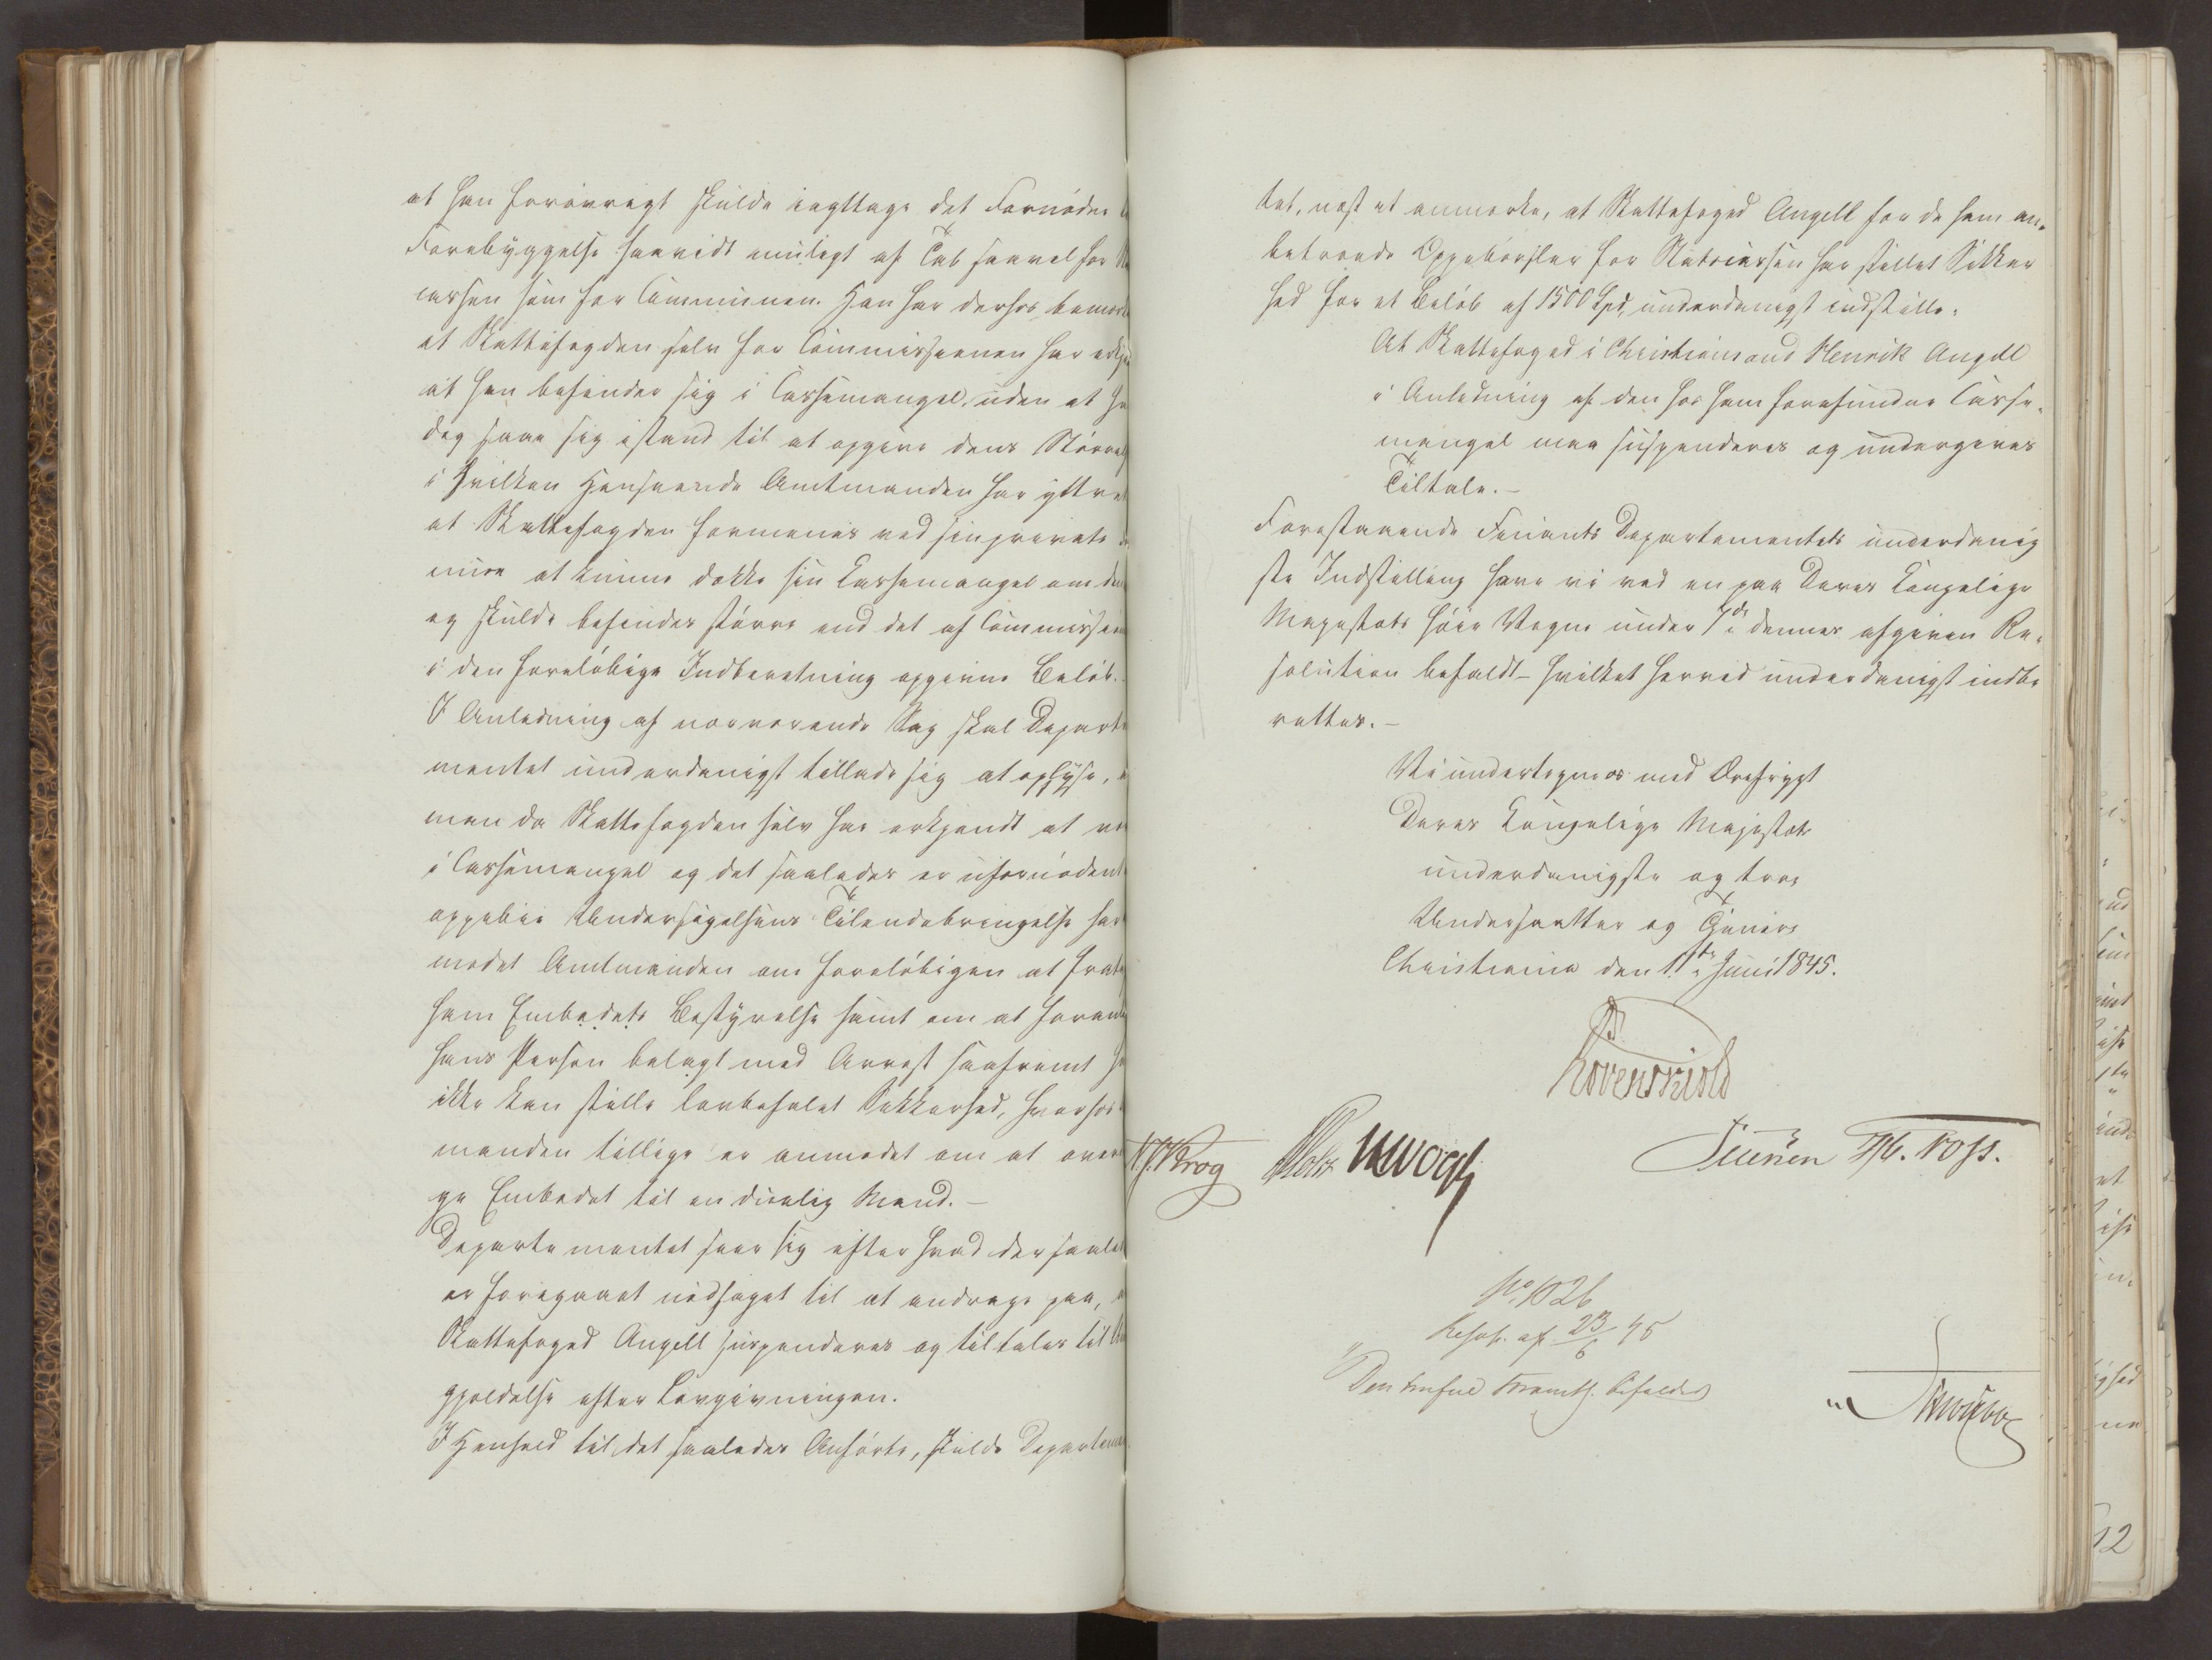 at han forøvrigt skulde iagttage det Fornødne
Forebyggelse saavidt muligt af Tab saavel for
cassen som for Communen. Han har derhos bemær
at Skattefogden selv for Commissionen har erkj
at han befinder sig i Cassemangel, uden at ha
dog saae sig istand til at opgive dens Størrel
i hvilken Henseende Amtmanden har yttret
at Skattefogden formenes ved sin private
mue at kunne dække sin Cassemangel om den
og skulde befindes større end det af Commission
i den foreløbige Indberetning opgivne Beløb.
I Anledning af nærværende Sag skal Departe
mentet underdanigst tillade sig at oplyse,
man da Skattefogden selv har erkjendt at væ
i Cassemangel og det saaledes er ufornødent
oppebie Undersøgelsens Tilendebringelse har
modet Amtmanden om foreløbigen at fratag
ham Embedets Bestyrelse samt om at foran
hans Person belagt med Arrest saafremt ha
ikke kan stille lovbefalet Sikkerhed, hvorhos
manden tillige er anmodet om at over
ge Embedet til en duelig Mand.-
Departementet seer sig efter hvad der saaled
er foregaaet nødsaget til at andrage paa,
Skattefoged Angell suspenderes og tiltales til
gjældelse efter Lovgivningen.
I Henhold til det saaledes Anførte, skulde Departemen
tet, næst at anmærke, at Skattefoged Angell for de ham an-
betroede Oppebørsler for Statscassen har stillet Sikker
hed for et Beløb af 1500 Spd, underdanigst indstille:
At Skattefoged i Christiansand Henrik Angell
i Anledning af den hos ham forefundne Casse-
mangel maa suspenderes og undergives
Tiltale.-
Forestaaende Finants Departementets underdanig
ste Indstilling have vi ved en paa Deres Kongelige
Majestæts høie Vegne under 7de dennes afgiven Re-
solution bifaldt- hvilket herved underdanigst indbe
rettes.-
Vi undertegne os med Ærefrygt
Deres Kongelige Majestæts
underdanigste og troe
Undersaatter og Tjenere
Christiania den 11te Juni 1845.
Løvenskiold
Krog Holst Vogt Sibbern Foss.
No 1026
Resol. af 23/6 45